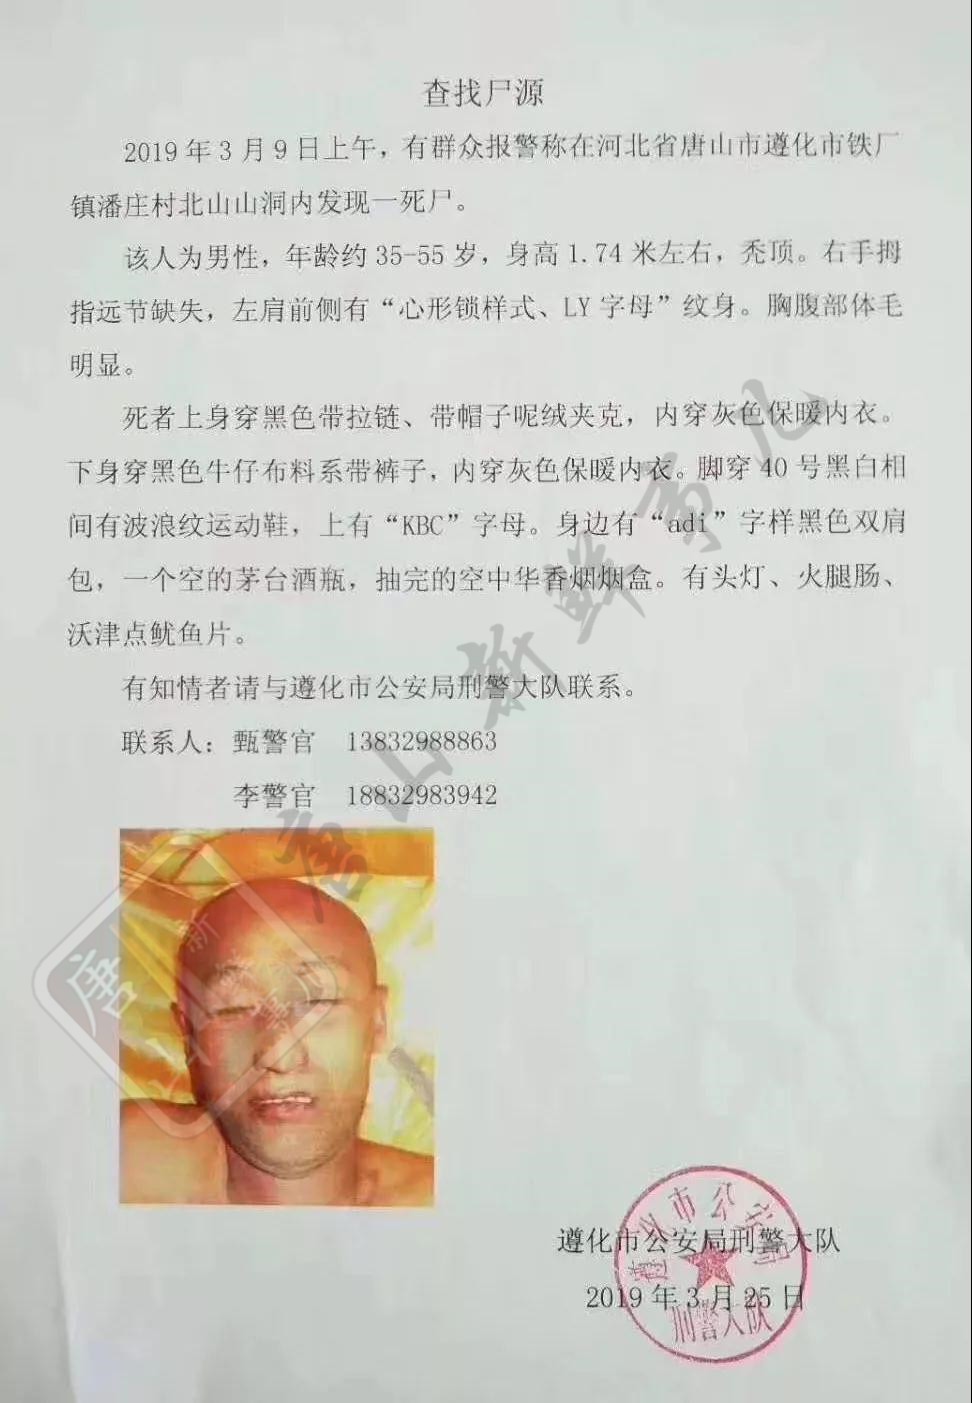 查找尸源
2019年3月9日上午，有群众报警称在河北省唐山市遵化市铁厂
镇潘庄村北山山洞内发现一死尸。
该人为男性，年龄约35-55岁，身高1.74米左右，秃顶。右手拇
指远节缺失，左肩前侧有“心形锁样式、LY字母”纹身。胸腹部体毛
明显。
死者上身穿黑色带拉链、带帽子呢绒夹克，内穿灰色保暖内衣。
下身穿黑色牛仔布料系带裤子，内穿灰色保暖内衣。脚穿40号黑白相
间有波浪纹运动鞋，上有“KBC”字母。身边有“adi”字样黑色双肩
包，一个空的茅台酒瓶，抽完的空中华香烟烟盒。有头灯、火腿肠、
沃津点鱿鱼片。
有知情者请与遵化市公安局刑警大队联系。
联系人：甄警官 13832988863
李警官 18832983942
唐山新鲜事儿
唐山
遵化市公安局刑警大队
2019年3月25日
遵化市公安局
刑警大队